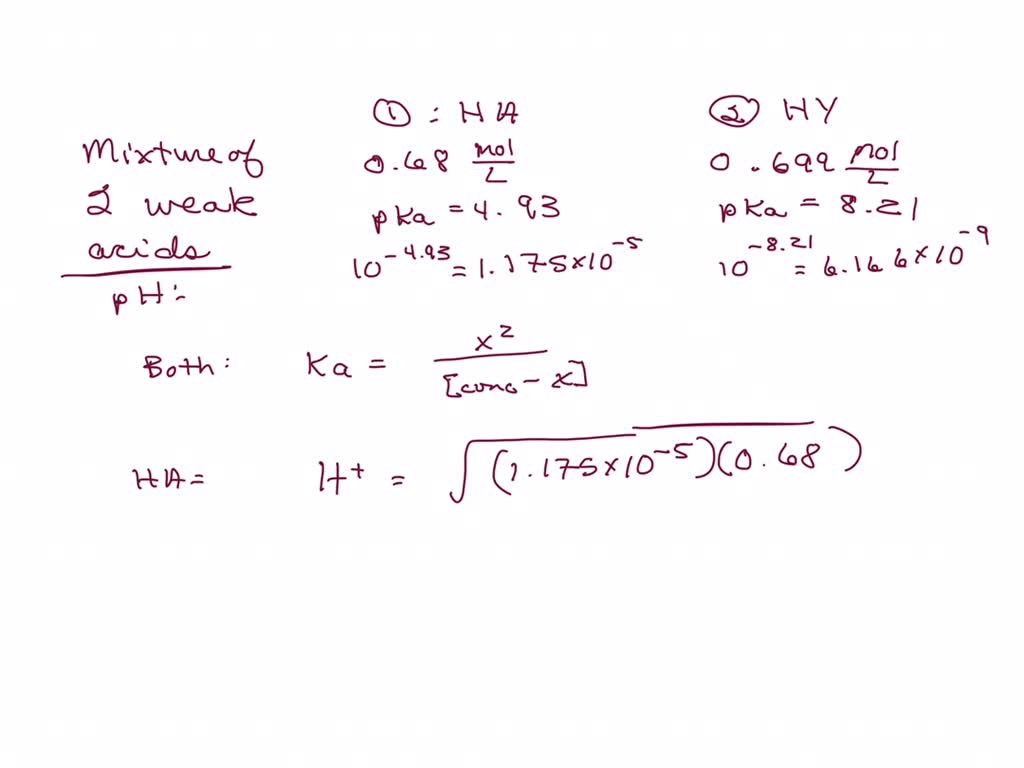 Mixture of
2 weak
acids
pH:
① : HA
0.68 mol/L
pKa = 4.93
10^-4.93 = 1.175×10^-5
② HY
0.699 mol/L
pKa = 8.21
10^-8.21 = 6.166×10^-9
Both: Ka = x^2/[conc - x]
HA= H+ = √(1.175×10^-5)(0.68)